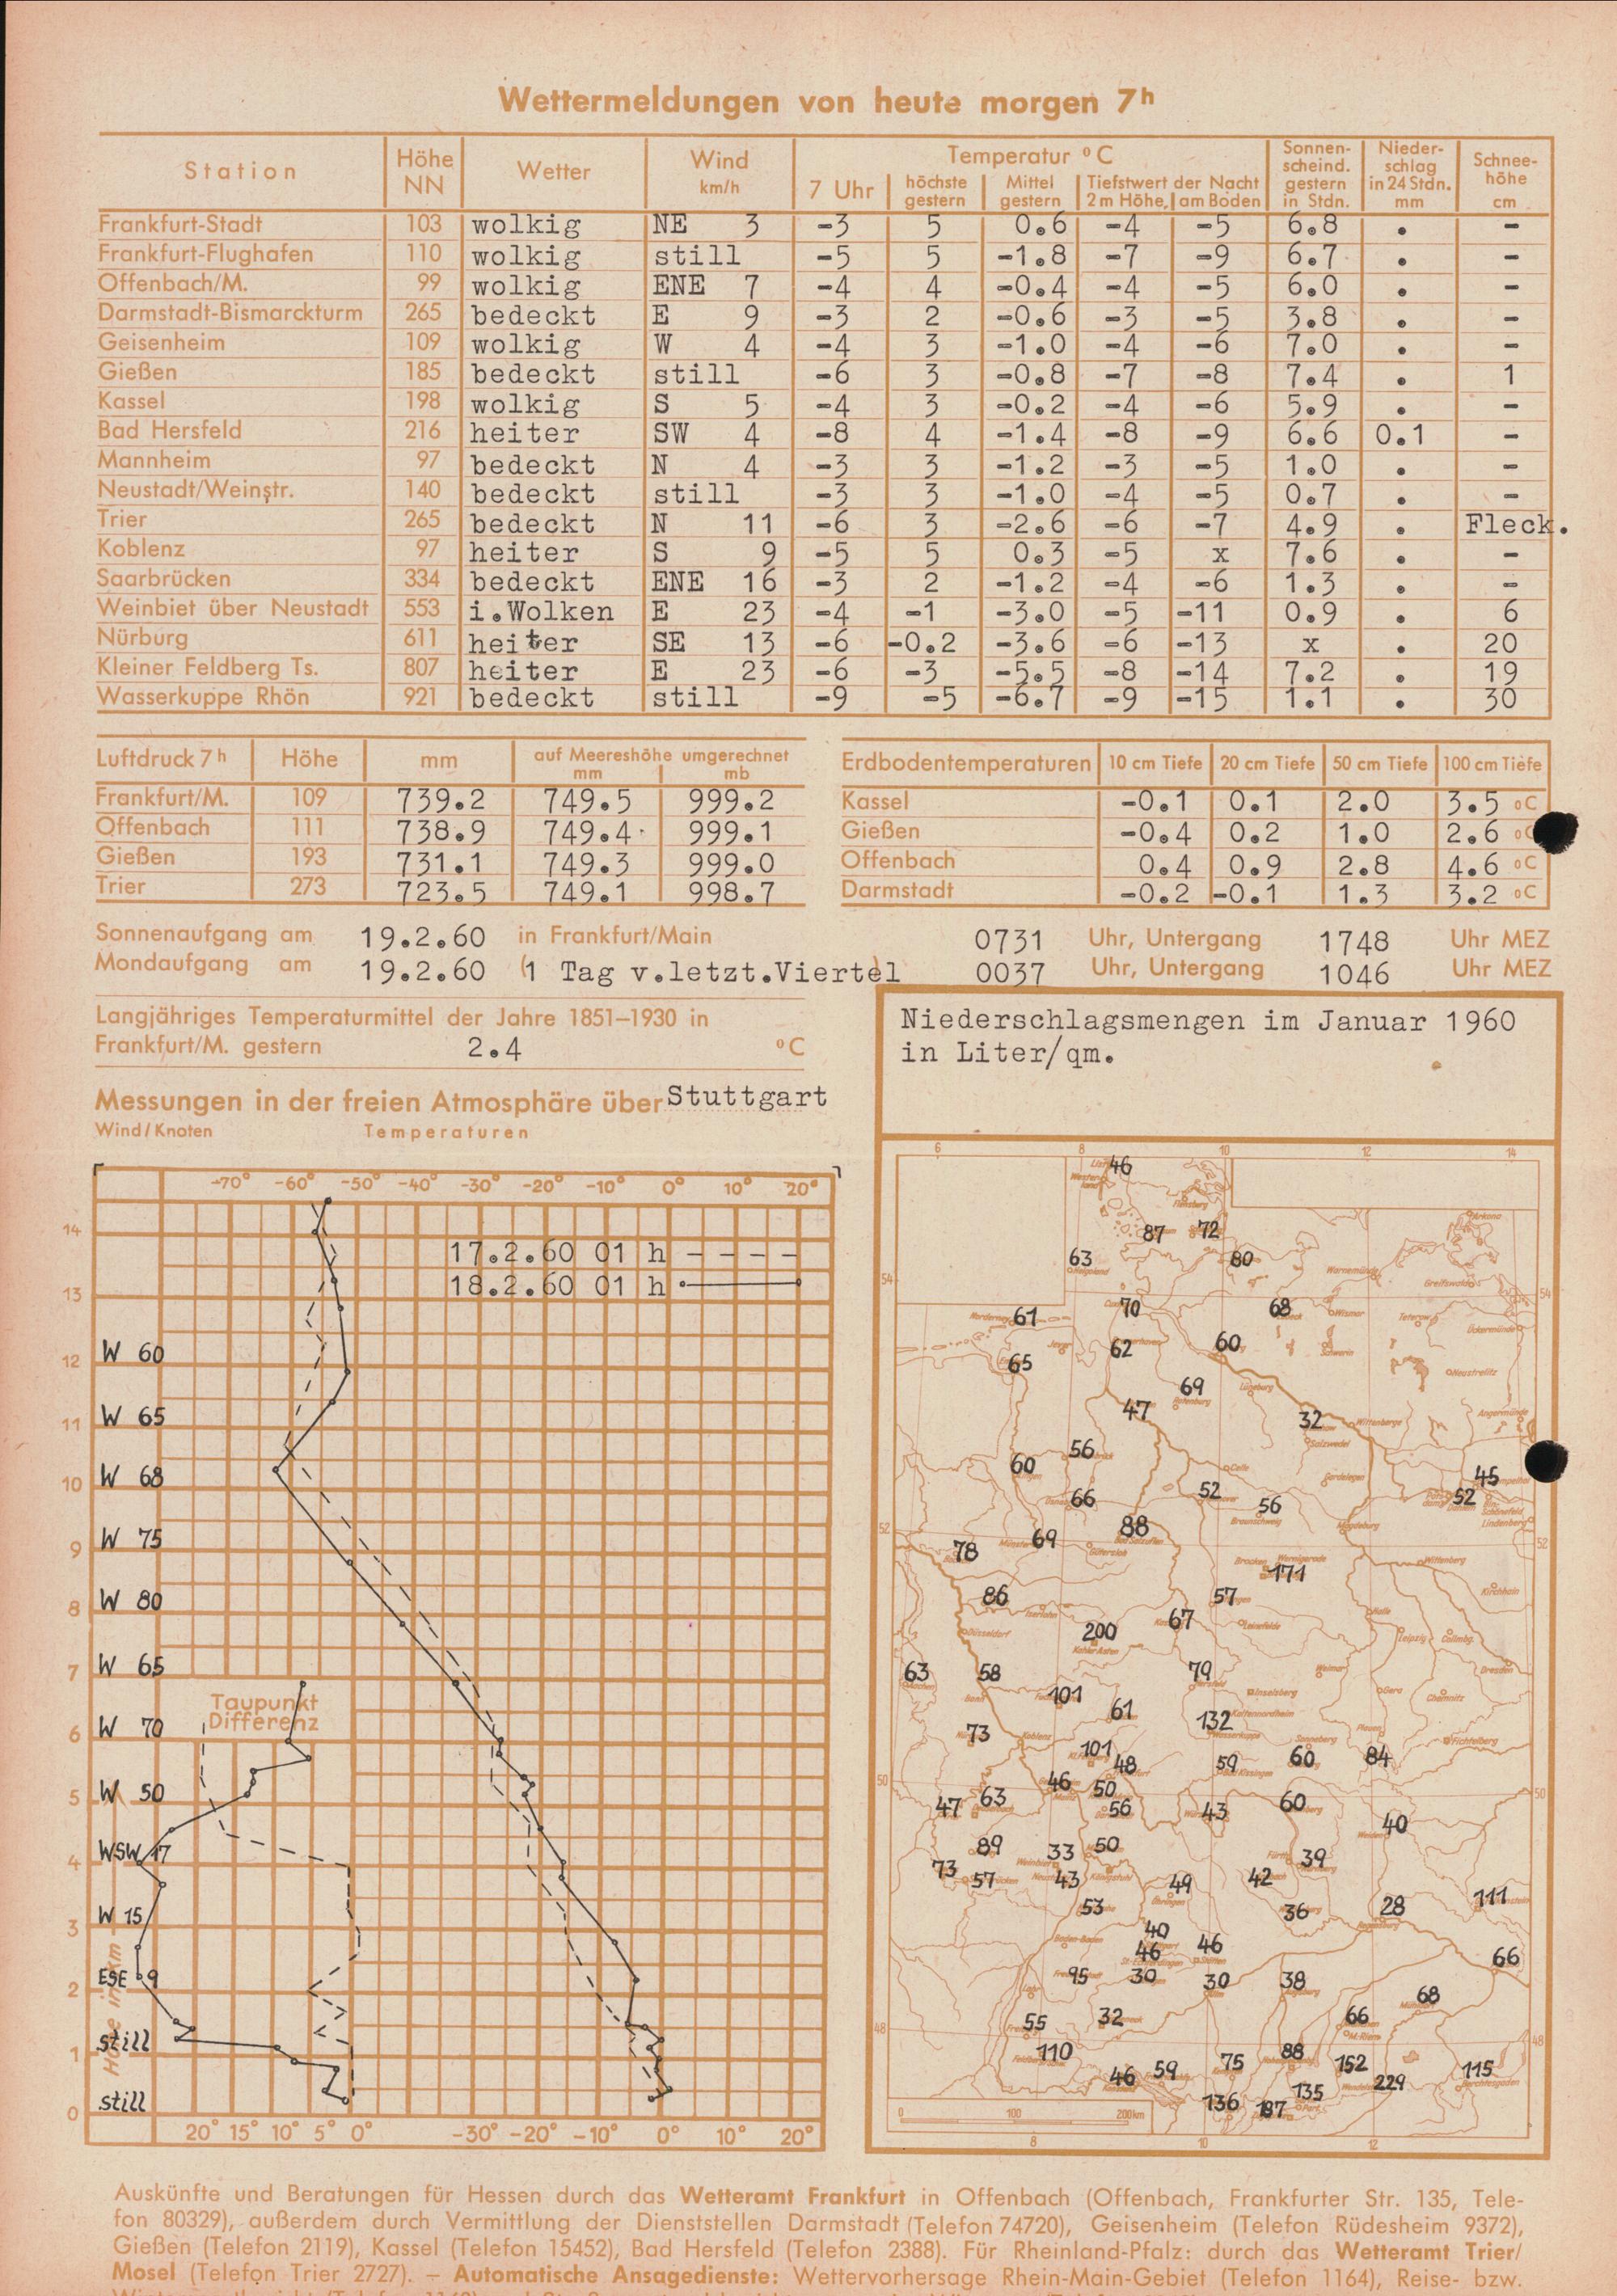 Wettermeldungen von heute morgen 7h
Station Höhe NN Wetter Wind km/h Temperatur °C Sonnenscheind. gestern in Stdn. Niederschlag in 24 Stdn. mm Schneehöhe cm
7 Uhr höchste gestern Mittel gestern Tiefstwert der Nacht 2 m Höhe, am Boden
Frankfurt-Stadt 103 wolkig NE 3 -3 5 0.6 -4 -5 6.8 . -
Frankfurt-Flughafen 110 wolkig still -5 5 -1.8 -7 -9 6.7 . -
Offenbach/M. 99 wolkig ENE 7 -4 4 -0.4 -4 -5 6.0 . -
Darmstadt-Bismarckturm 265 bedeckt E 9 -3 2 -0.6 -3 -5 3.8 . -
Geisenheim 109 wolkig W 4 -4 3 -1.0 -4 -6 7.0 . -
Gießen 185 bedeckt still -6 3 -0.8 -7 -8 7.4 . 1
Kassel 198 wolkig S 5 -4 3 -0.2 -4 -6 5.9 . -
Bad Hersfeld 216 heiter SW 4 -8 4 -1.4 -8 -9 6.6 0.1 -
Mannheim 97 bedeckt N 4 -3 3 -1.2 -3 -5 1.0 . -
Neustadt/Weinstr. 140 bedeckt still -3 3 -1.0 -4 -5 0.7 . -
Trier 265 bedeckt N 11 -6 3 -2.6 -6 -7 4.9 . Fleck.
Koblenz 97 heiter S 9 -5 5 0.3 -5 x 7.6 . -
Saarbrücken 334 bedeckt ENE 16 -3 2 -1.2 -4 -6 1.3 . -
Weinbiet über Neustadt 553 i.Wolken E 23 -4 -1 -3.0 -5 -11 0.9 . 6
Nürburg 611 heiter SE 13 -6 -0.2 -3.6 -6 -13 x . 20
Kleiner Feldberg Ts. 807 heiter E 23 -6 -3 -5.5 -8 -14 7.2 . 19
Wasserkuppe Rhön 921 bedeckt still -9 -5 -6.7 -9 -15 1.1 . 30
Luftdruck 7h Höhe mm auf Meereshöhe umgerechnet mm mb
Frankfurt/M. 109 739.2 749.5 999.2
Offenbach 111 738.9 749.4 999.1
Gießen 193 731.1 749.3 999.0
Trier 273 723.5 749.1 998.7
Erdbodentemperaturen 10 cm Tiefe 20 cm Tiefe 50 cm Tiefe 100 cm Tiefe
Kassel -0.1 0.1 2.0 3.5 °C
Gießen -0.4 0.2 1.0 2.6
Offenbach 0.4 0.9 2.8 4.6 °C
Darmstadt -0.2 -0.1 1.3 3.2 °C
Sonnenaufgang am 19.2.60 in Frankfurt/Main 0731 Uhr, Untergang 1748 Uhr MEZ
Mondaufgang am 19.2.60 (1 Tag v.letzt.Viertel) 0037 Uhr, Untergang 1046 Uhr MEZ
Langjähriges Temperaturmittel der Jahre 1851–1930 in
Frankfurt/M. gestern 2.4 °C
Messungen in der freien Atmosphäre über Stuttgart
Wind/Knoten Temperaturen
-70° -60° -50° -40° -30° -20° -10° 0° 10° 20°
17.2.60 01 h
18.2.60 01 h
14
13
12 W 60
11 W 65
10 W 68
9 W 75
8 W 80
7 W 65
Taupunkt
Differenz
6 W 70
5 W 50
4 WSW 17
3 W 15
2 ESE 9
1 still
0 still
Höhe in km
20° 15° 10° 5° 0° -30° -20° -10° 0° 10° 20°
Niederschlagsmengen im Januar 1960
in Liter/qm.
6 8 10 12 14
46
87 72
63 80
54 54
61 70 68
65 62 60
69
47 32
56
60 45
66 52 56 52
88
52 69 52
78 171
86 57
200 67
63 58 79
101
61 132
73
101 48 59 60 84
50 46 50 50
47 63 56 43 60
40
89 33 50 39
73 57 43 49 42
53 36 28 111
40
46 46 66
95 30 30 38
68
48 55 32 66 48
110 88
46 59 75 152 229 115
136 187 135
0 100 200km
8 10 12
Auskünfte und Beratungen für Hessen durch das Wetteramt Frankfurt in Offenbach (Offenbach, Frankfurter Str. 135, Tele-
fon 80329), außerdem durch Vermittlung der Dienststellen Darmstadt (Telefon 74720), Geisenheim (Telefon Rüdesheim 9372),
Gießen (Telefon 2119), Kassel (Telefon 15452), Bad Hersfeld (Telefon 2388). Für Rheinland-Pfalz: durch das Wetteramt Trier/
Mosel (Telefon Trier 2727). – Automatische Ansagedienste: Wettervorhersage Rhein-Main-Gebiet (Telefon 1164), Reise- bzw.